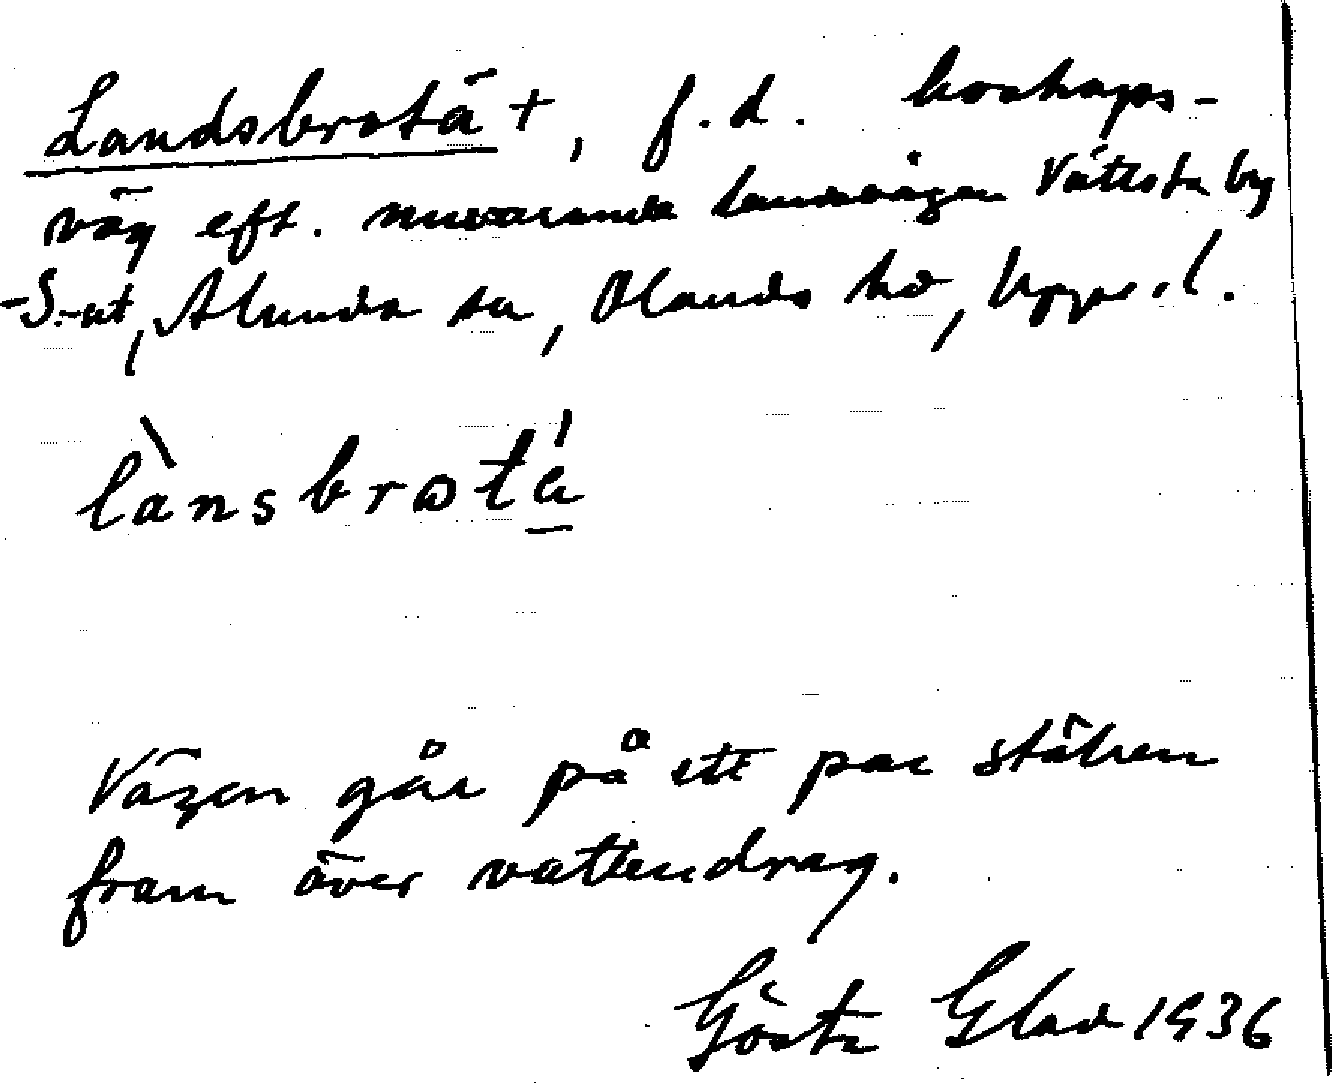 Landsbrotä +, f.d. boskaps-
väg eft. nuvarande landsvägen Vättsta by
-S.-ut, Alunda sn, Olands hd, Uppl.
lànsbrɷtá
Vägen går på ett par ställen
fram över vattendrag.
Gösta Glad 1936